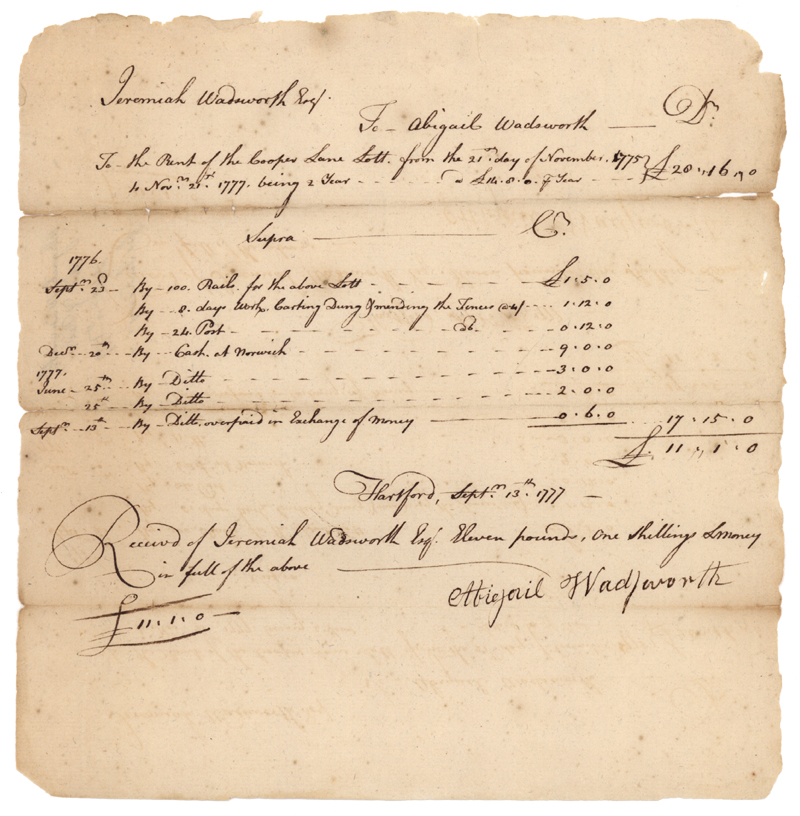 Jeremiah Wadsworth Esqr.
To Abigail Wadsworth — Dr.
To the Rent of the Cooper Lane Lott. from the 21st day of November. 1775
to Novm. 21st. 1777. being 2 Year - - - - - a £14.8.0. ⅌ Year - - - £28 " 16 " 0
Supra — Cr.
1776.
Septm. 23d — By - 100. Rails. for the above Lott - - - £1.5.0
By - 8. days Work. Carting Dung & mending the Fences @4/ - - - 1.12.0
By - 24. Post - - - - - - do. - - - 0.12.0
Decm. 20th - - By - Cash. at Norwich - - - 9.0.0
1777.
June - 25th - By - Ditto - - - 3.0.0
25th By - Ditto - - - 2.0.0
Septm. 13th - By - Ditto, overpaid in Exchange of Money — 0.6.0 17.15.0
£. 11.1.0
Hartford, Septm. 13th. 1777 —
Receivd of Jeremiah Wadsworth Esqr. Eleven pounds, One shillings LMoney
in full of the above
Abigail Wadsworth
£11.1.0